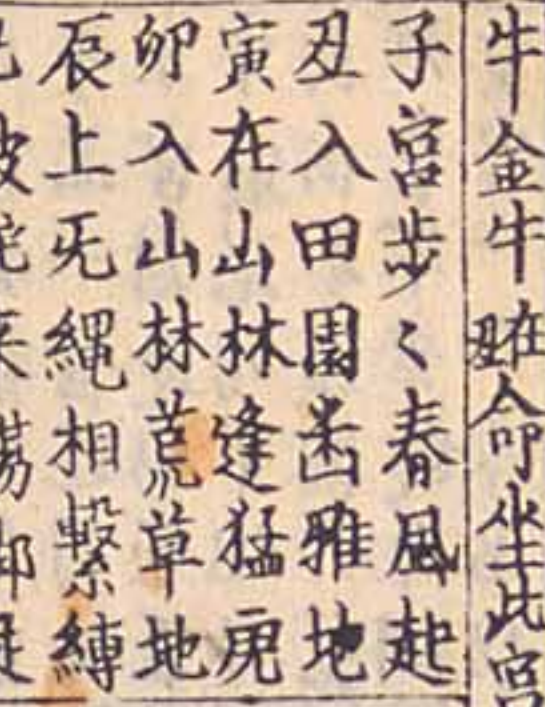 牛金牛丑在命坐此宮
子宮步々春風起
丑入田園雅地
寅在山林逢猛虎
卯入山林荒草地
辰上旡繩相繫縛